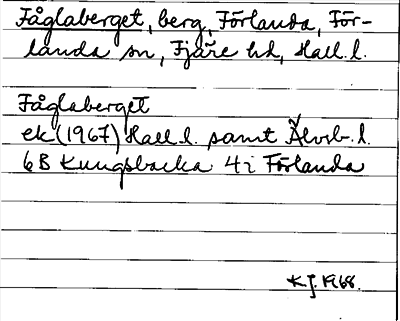 Fåglaberget, berg, Förlanda, För-
landa sn, Fjäre hd, Hall. l.
Fåglaberget
ek (1967) Hall. l. samt Älvsb. l.
6B Kungsbacka 4i Förlanda
K.J. 1968.